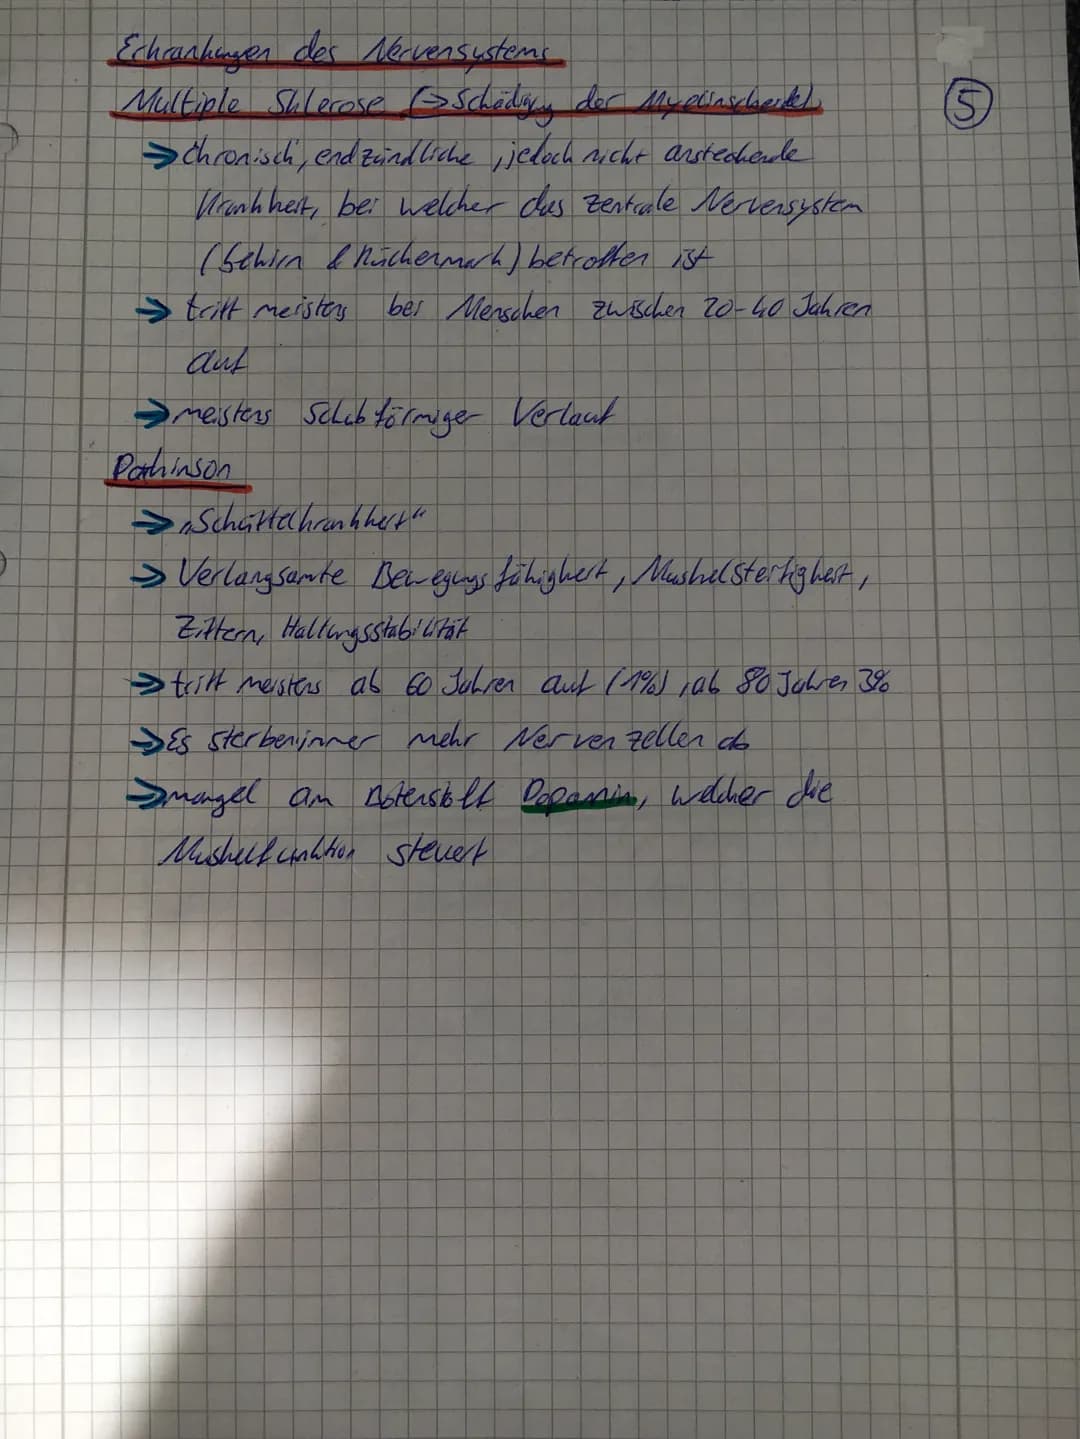 Erkrankungen des Nervensystems
Multiple Sklerose (→ Schädigung der Myelinscheide)
5
→ Chronisch, endzündliche, jedoch nicht ansteckende
Krankheit, bei welcher das zentrale Nervensystem
(Gehirn & Rückenmark) betroffen ist
→ tritt meistens bei Menschen zwischen 20-40 Jahren
auf
→ meistens Schubförmiger Verlauf
Parkinson
→ „Schüttelkrankheit"
→ Verlangsamte Bewegungsfähigkeit, Muskelsteifigkeit,
Zittern, Haltungsstabilität
→ tritt meistens ab 60 Jahren auf (1%), ab 80 Jahren 3%
→ Es sterben immer mehr Nervenzellen ab
→ mangel am Botenstoff Dopamin, welcher die
Muskelfunktion steuert